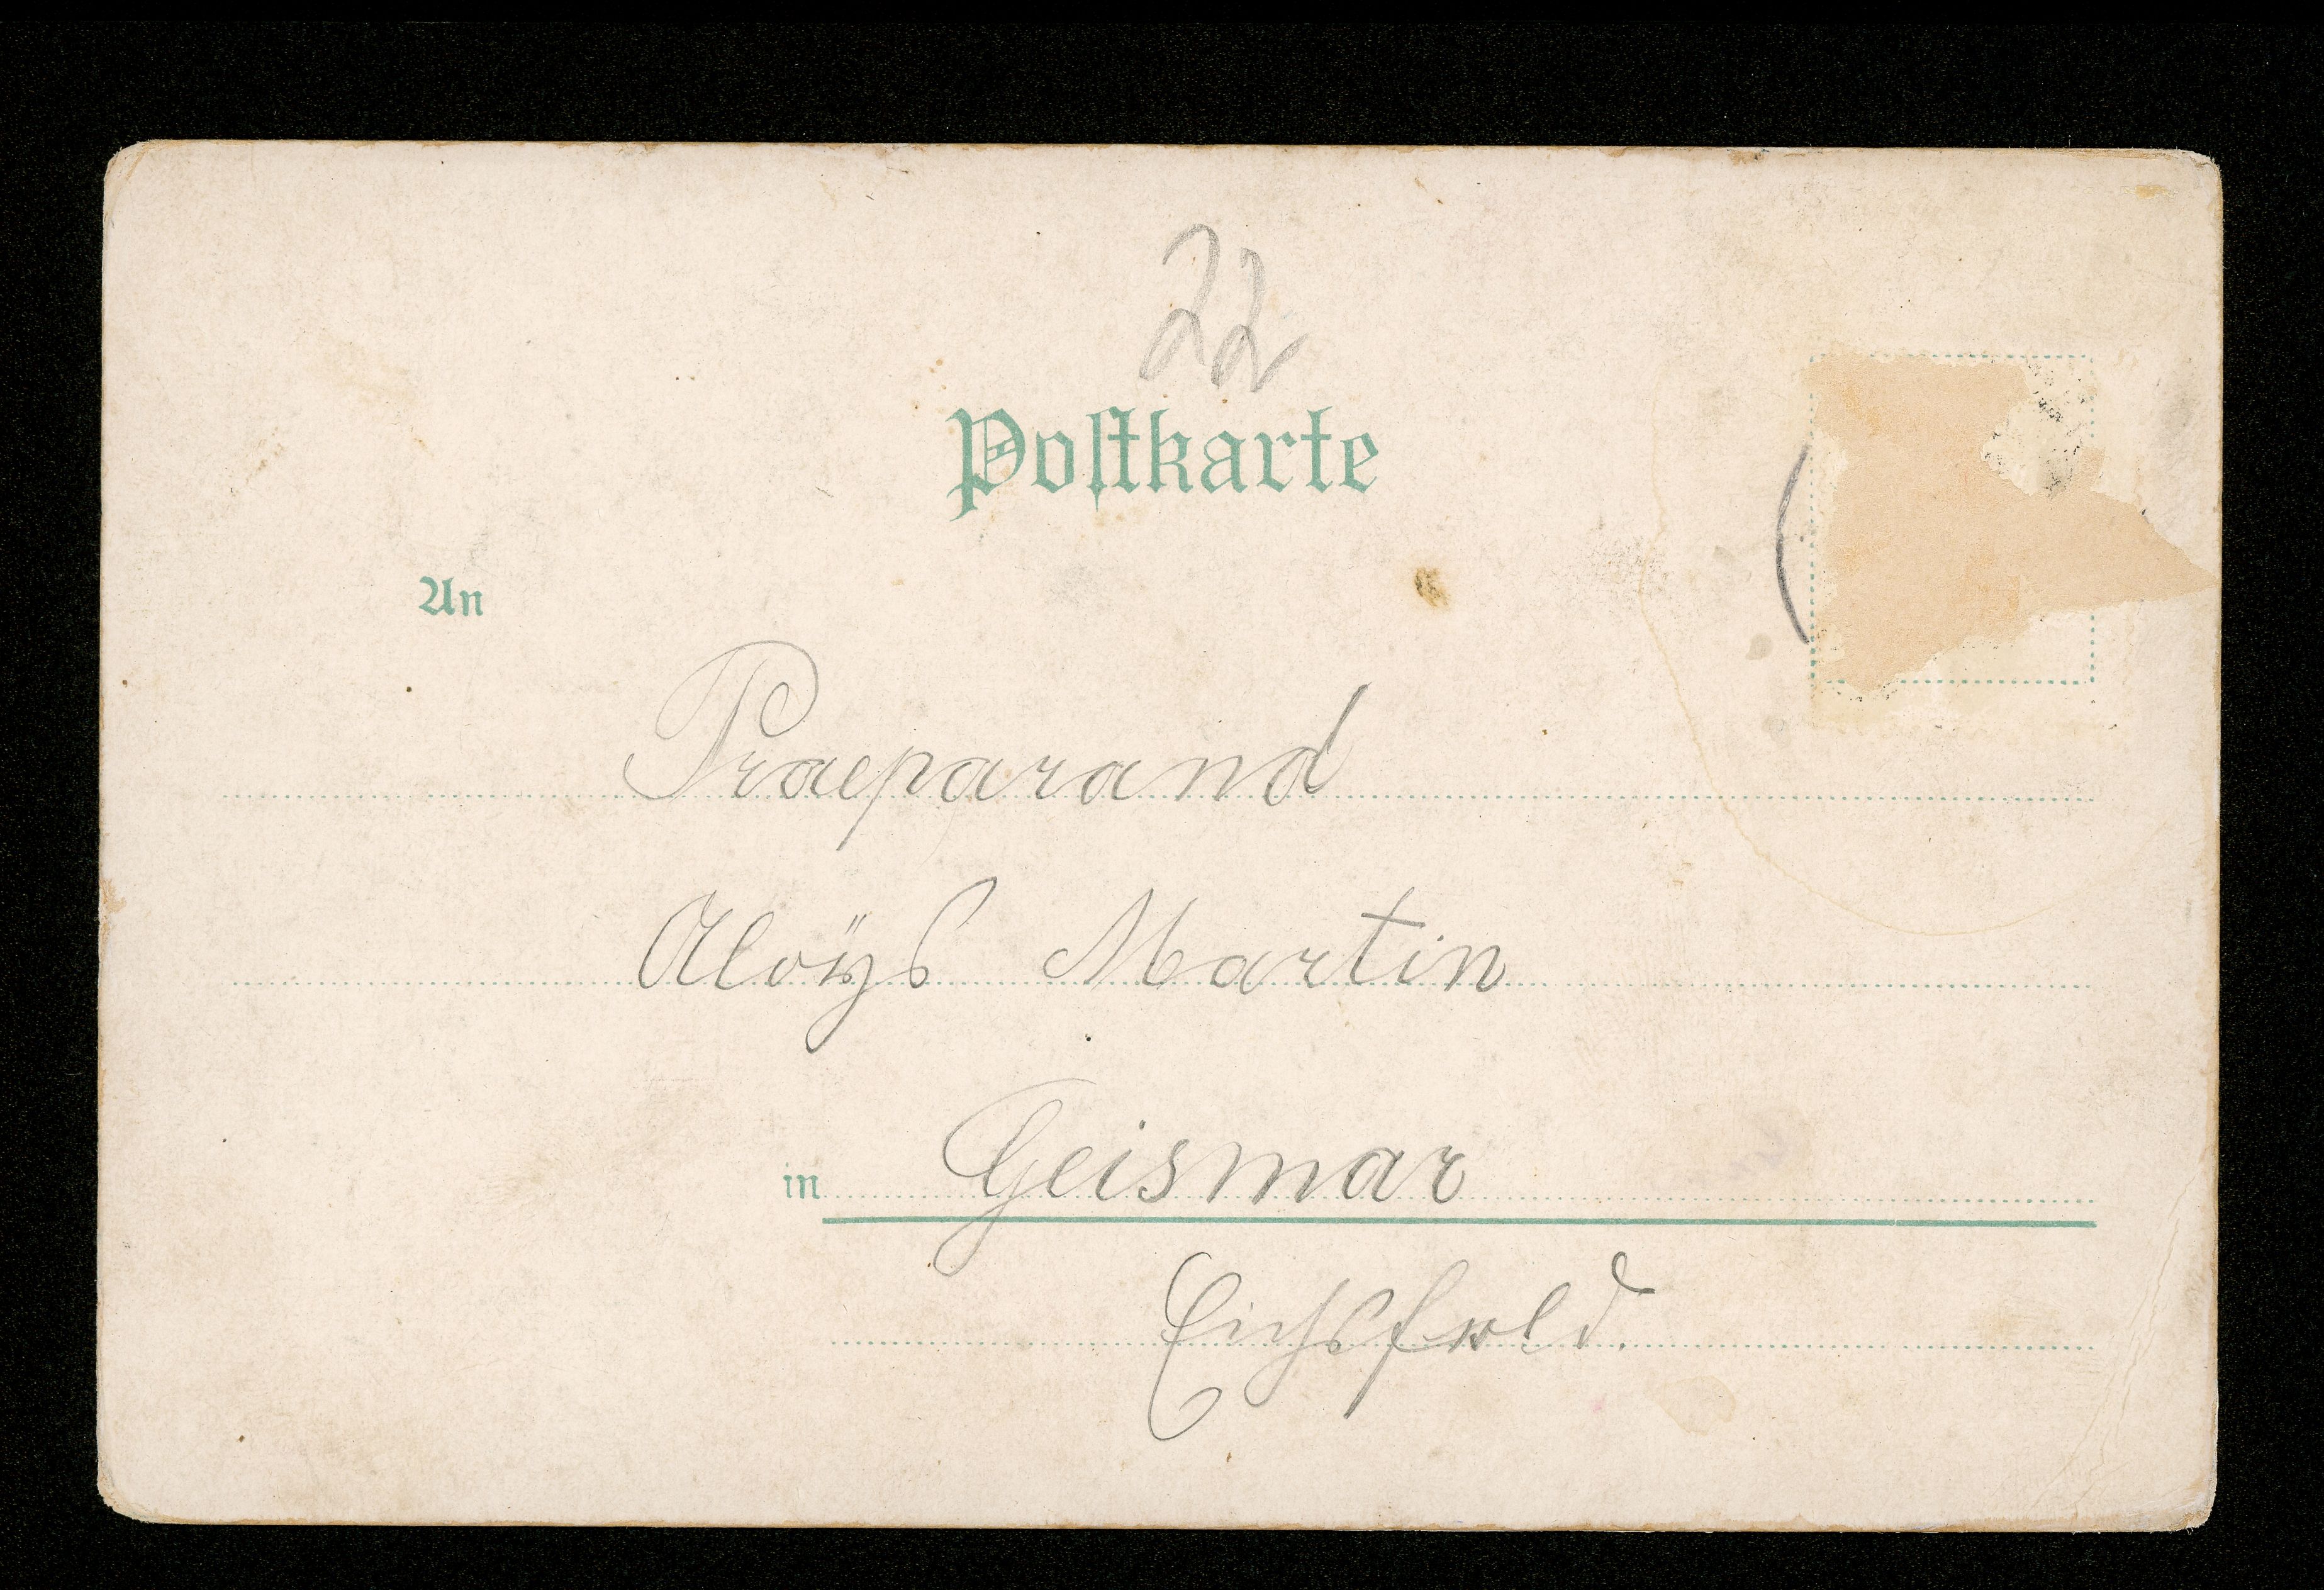 22
Poſtkarte
An
Praeparand
Aloÿs Martin
in Geismar
Eichsfeld.